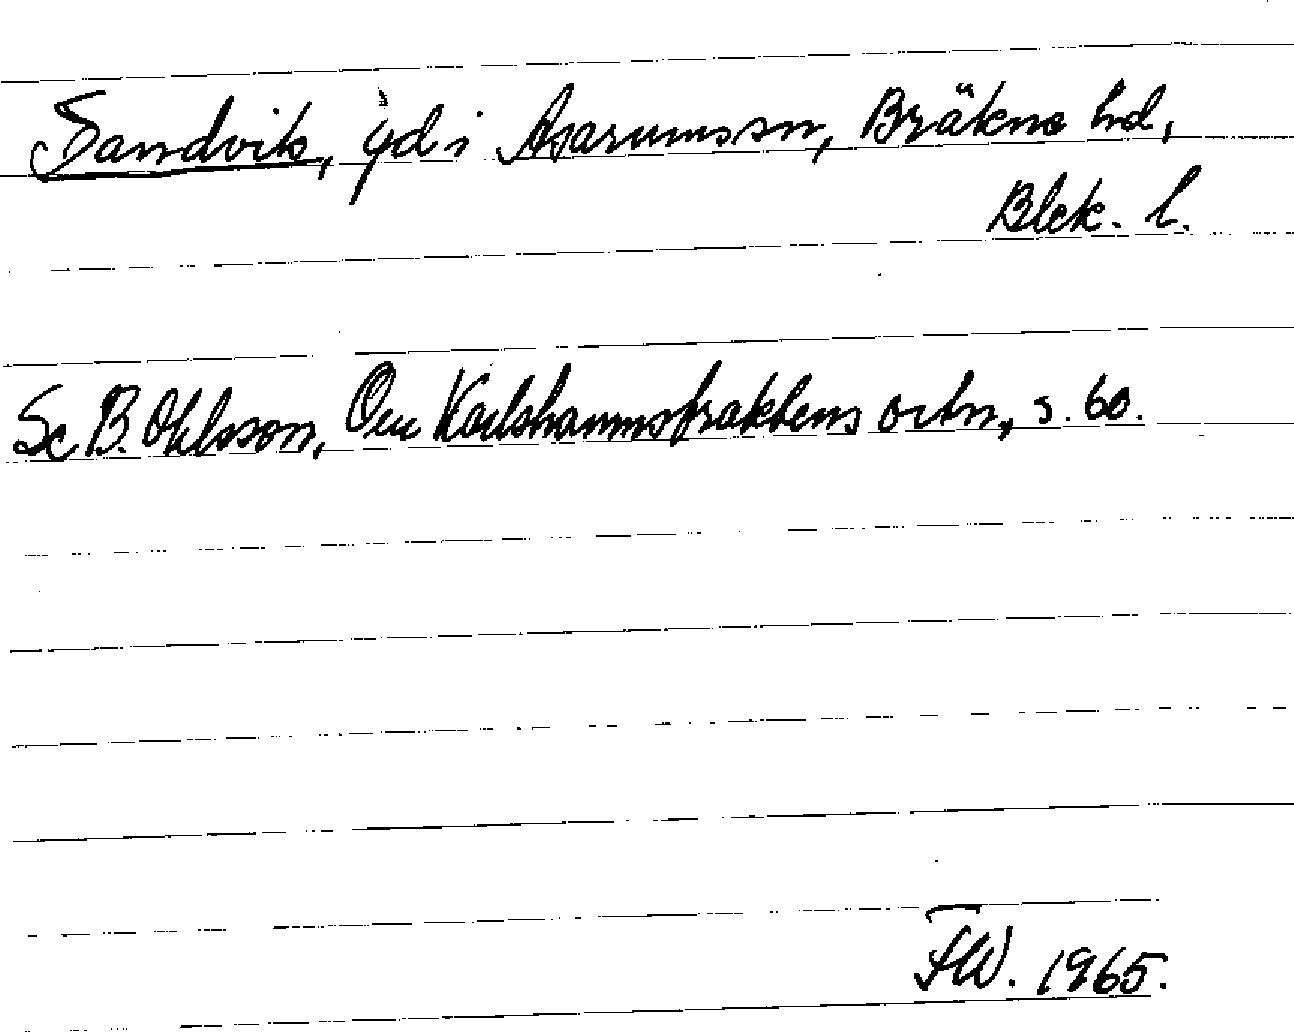 Sandvik, gd i Asarums sn, Bräkne hd,
Blek. l.
Se B. Ohlsson, Om Karlshamnstraktens ortn., s. 60.
FW. 1965.